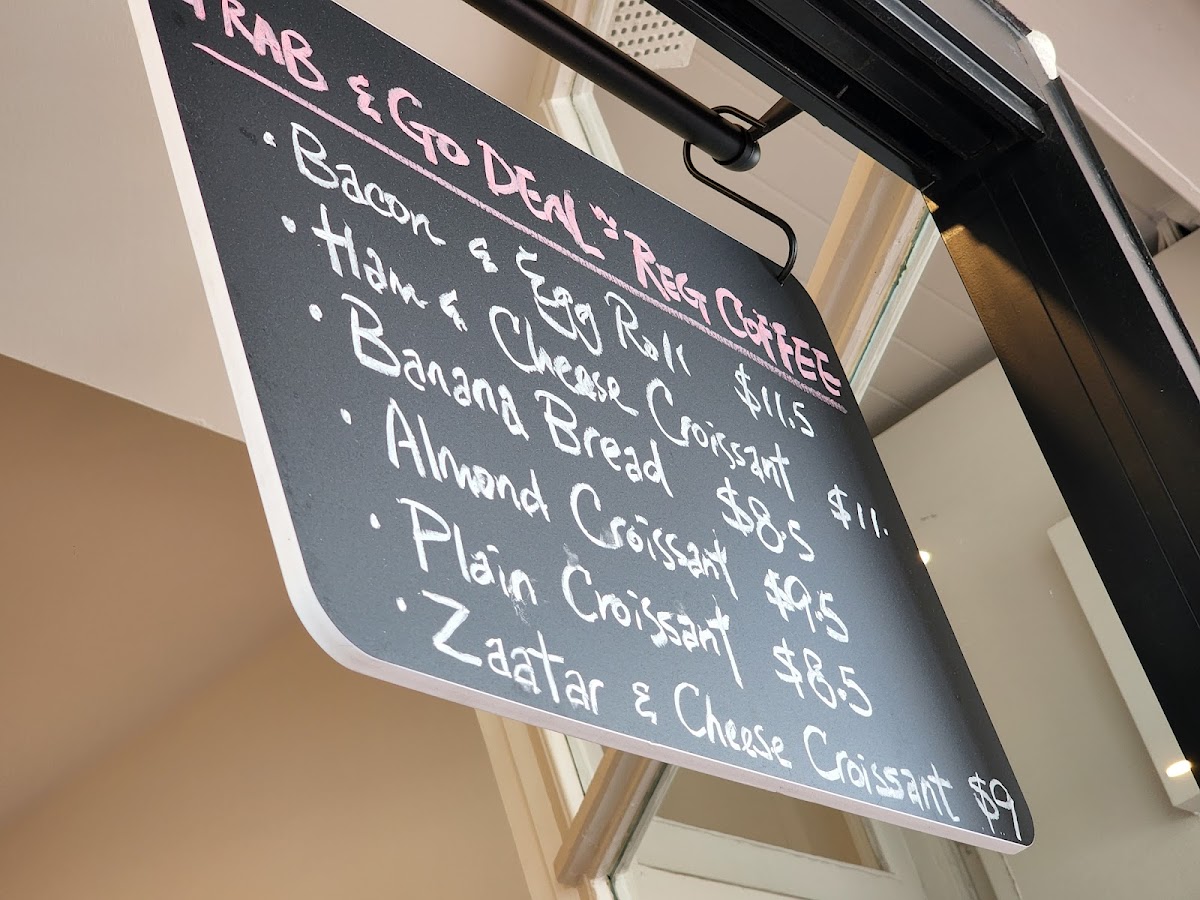 GRAB & GO DEAL = REG COFFEE
· Bacon & Egg Roll $11.5
· Ham & Cheese Croissant $11.
· Banana Bread $8.5
· Almond Croissant $9.5
· Plain Croissant $8.5
· Zaatar & Cheese Croissant $9